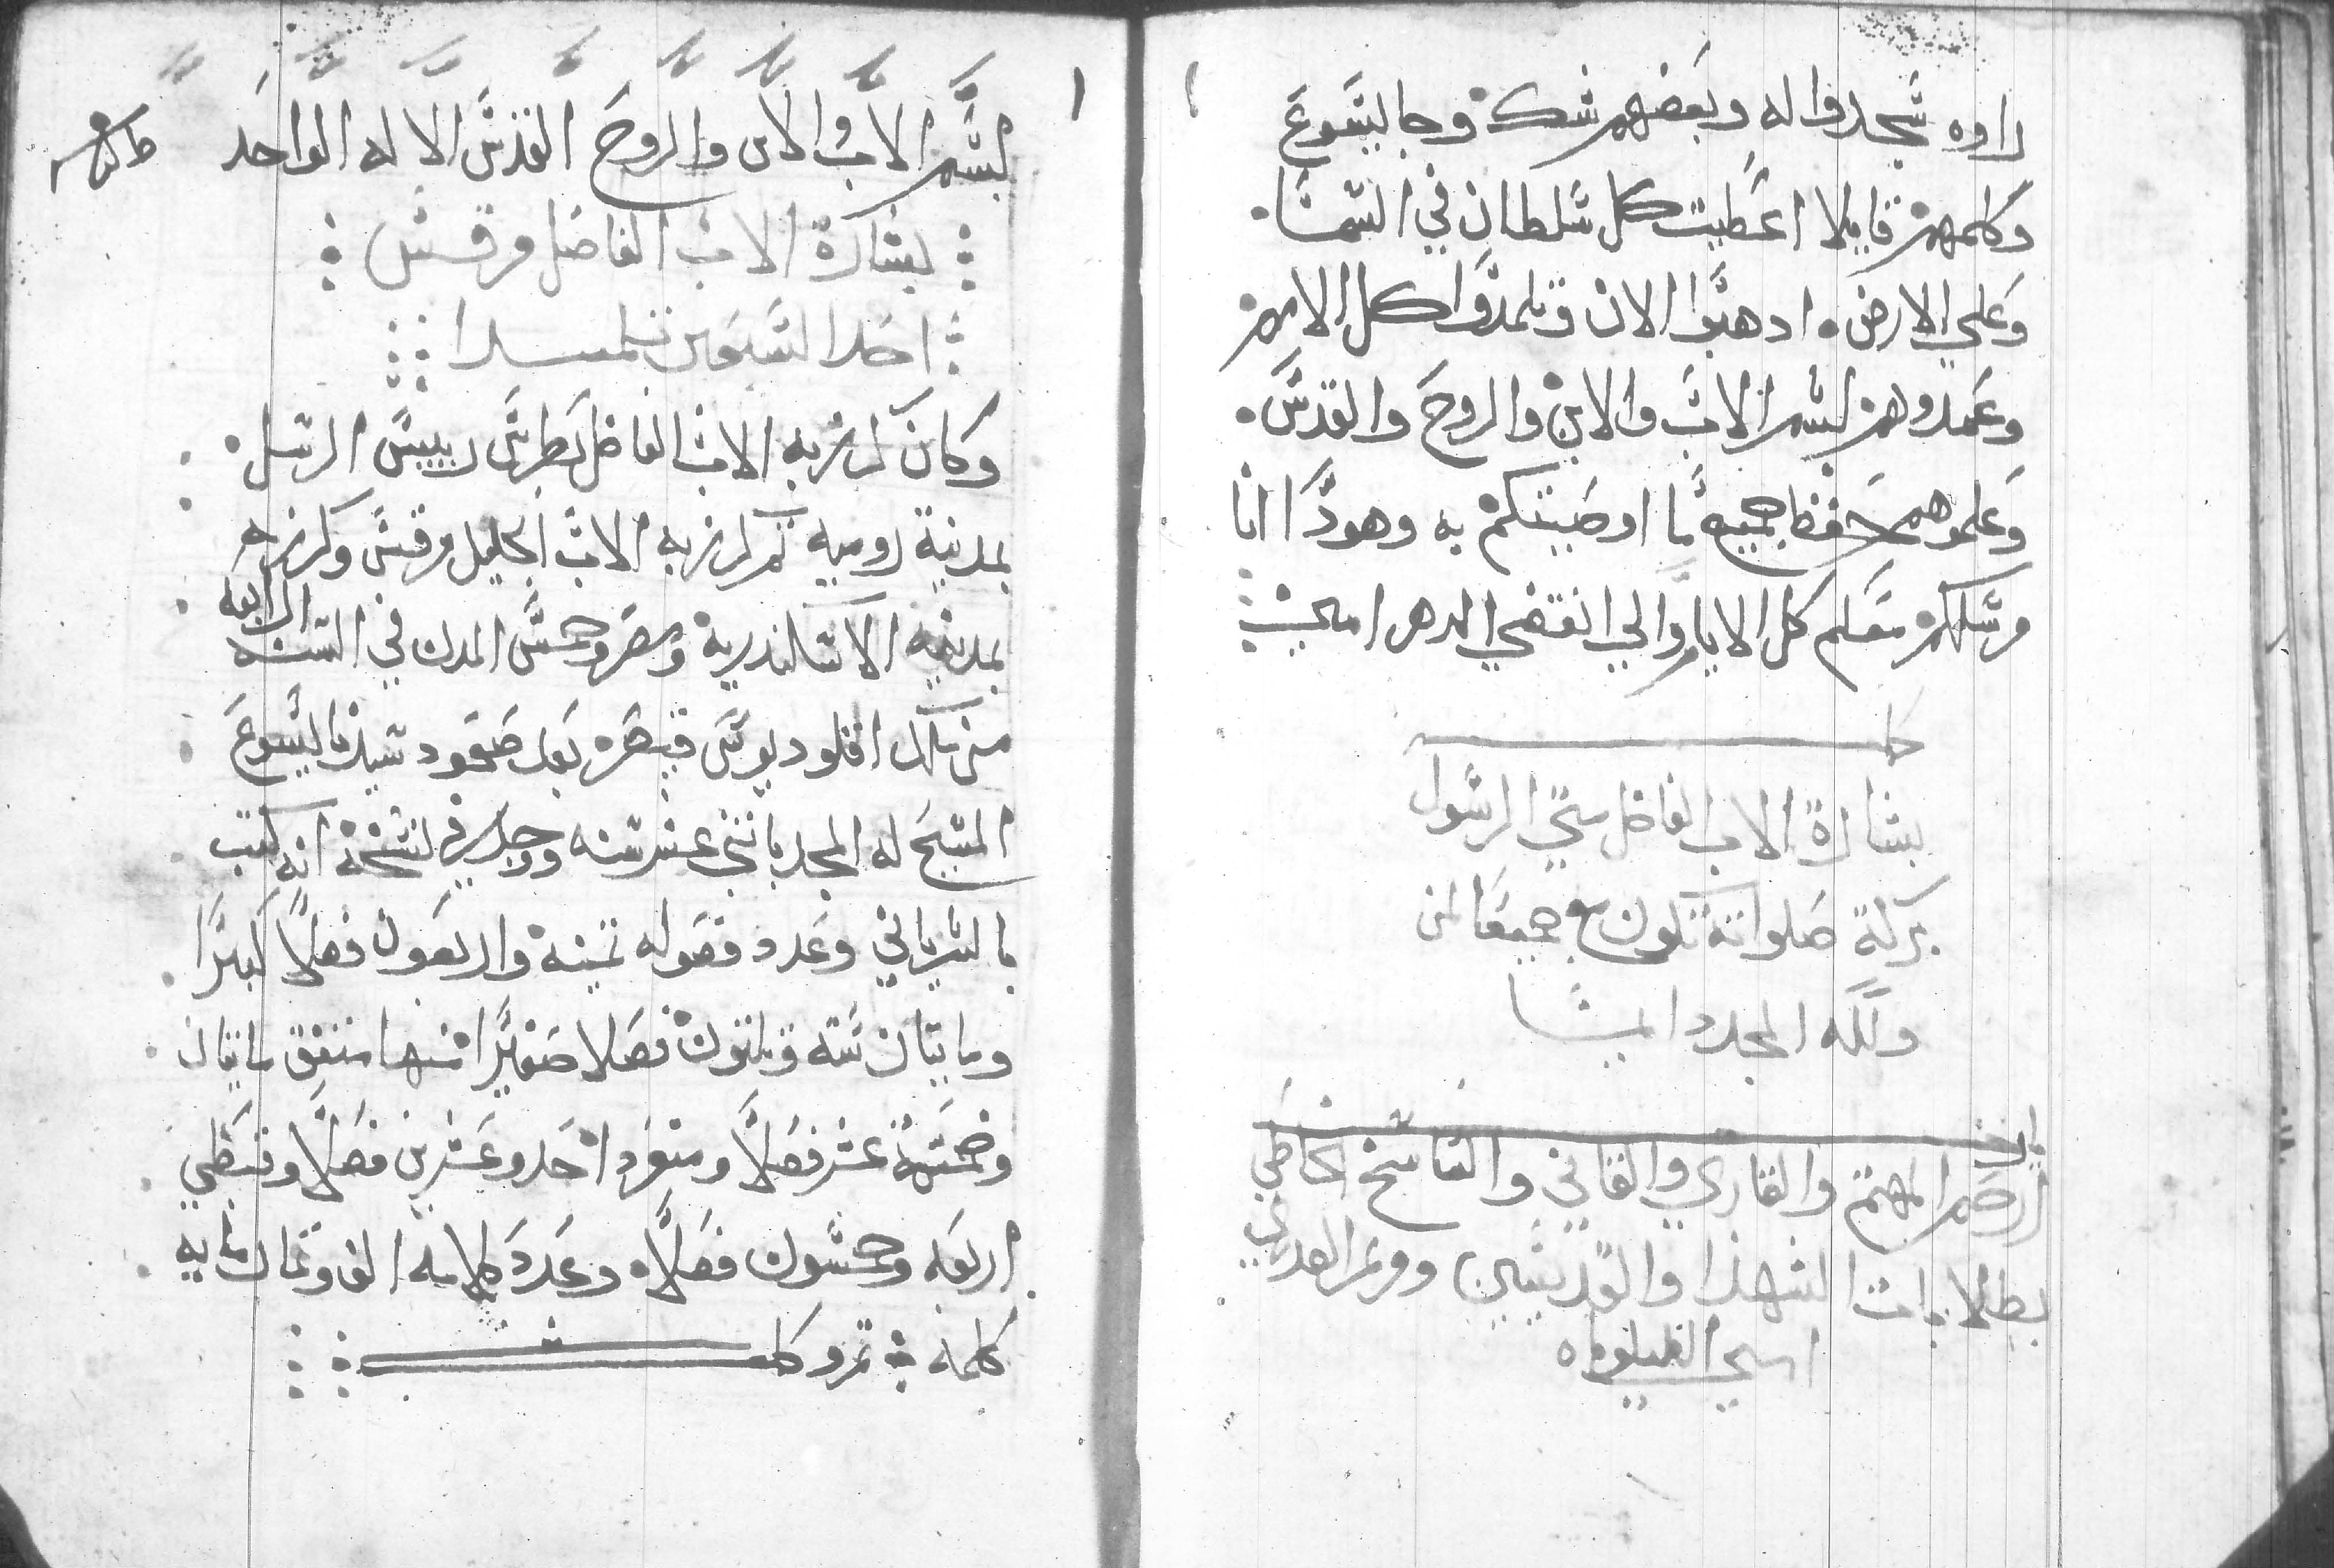 راوه سجدوا له وبعضهم شك وجا يسوع
وكلمهم قايلا اعطيت كل سلطان في السما
وعلي الارض ادهبوا الان وتلمدوا كل الامم
وعمدوهم بسم الاب والابن والروح والقدس
وعلموهم حفظ جميع ما اوصيتكم به وهودا انا
معكم كل الايام والي انقضي الدهر امين
كمل
بشارة الاب الفاضل متي الرسول
بركة صلواته تكون مع جميعا امين
ولله المجد دايما
يارب
ارحم المهتم والقاري والقاني والناسخ الخاطي
بطلابات الشهدا والقديسين ومريم العدري
بسم الاب والابن والروح القدس الاله الواحد
بشارة الاب الفاضل مرقس
احد السبعين تلميدا
وكان كرز به الاب الفاضل بطرس رييس الرسل
بمدينة روميه تم كرز به الاب الجليل مرقس وكرز به
بمدينه الاسكندرية ومصر وخمس المدن في السنه الرابعه
من ملك اقلوديوس قيصر بعد صعود سيدنا يسوع
المسيح له المجد باتني عشر سنه ووجد في نسخة انه كتب
بالسرياني وعدد فصوله تمنية واربعون فصلا كبيرا
ومايتان سته وتلتون فصلا صغيرا منها متفق مايتان
وخمسة عشر فصلا ومنفرد احد وعشرين فصلا وقبطي
اربعه وخمسون فصلا وعدد كلامه الف وتمان مايه
كلمه تم وكمل